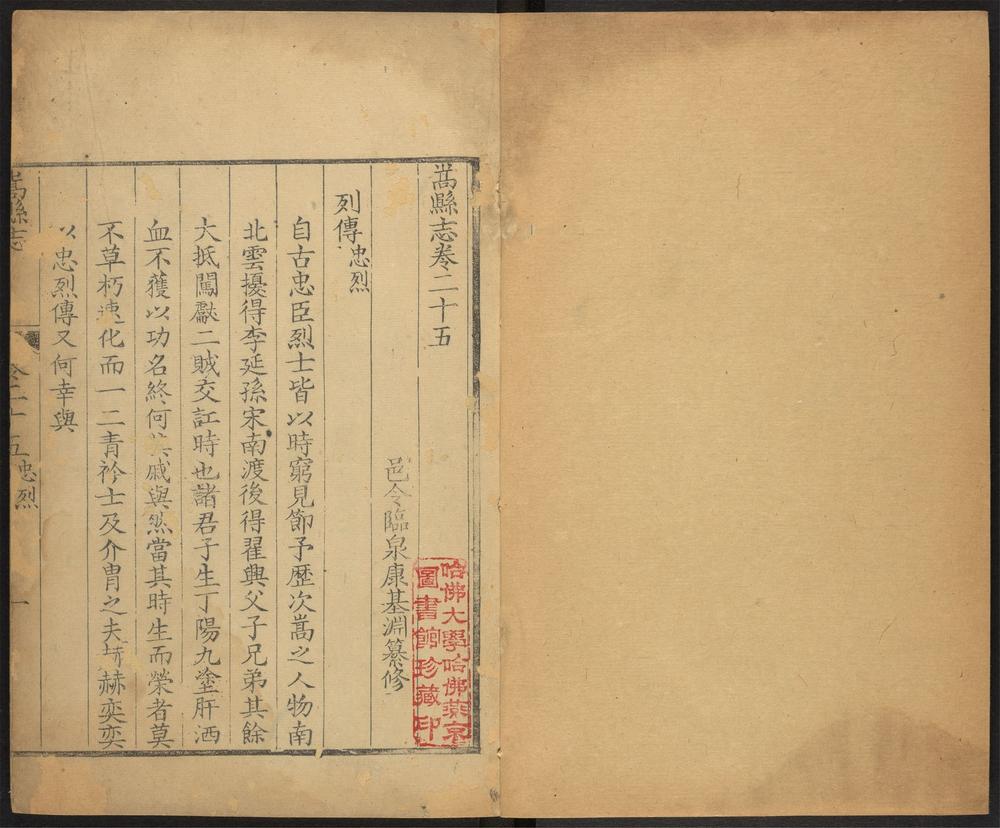 嵩縣志卷二十五
邑令臨泉康基淵纂修
列傳 忠烈
自古忠臣烈士皆以時窮見節予歷次嵩之人物南
北雲擾得李延孫宋南渡後得翟興父子兄弟其餘
大抵闖獻二賊交訌時也諸君子生丁陽九塗肝洒
血不獲以功名終何其戚與然當其時生而榮者莫
不草朽速化而一二青衿士及介胄之夫赫奕奕
以忠烈傳又何幸與
嵩縣志 卷二十五 忠烈 一
哈佛大學哈佛燕京
圖書館珍藏印